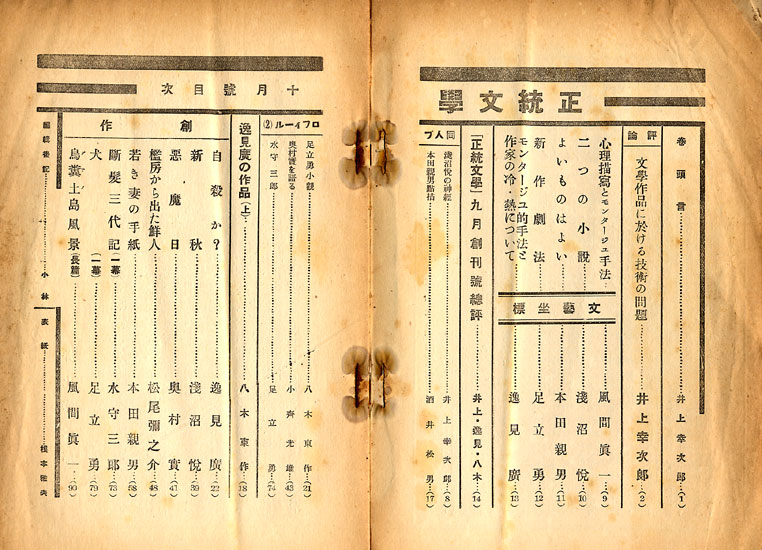 正統文學
卷頭言……井上幸次郎…(1)
評論
文學作品に於ける技術の問題……井上幸次郎…(2)
心理描寫とモンタージュ手法…風間眞一…(9)
二つの小說……淺沼悅…(10)
よいものはよい……本田親男…(11)
新作劇法……足立勇…(12)
モンタージュ的手法と
作家の冷・熱について……逸見廣…(13)
文藝坐標
『正統文學』九月創刊號總評……井上・逸見・八木…(14)
同人プ
淺沼悅の神經……井上幸次郎…(8)
本田親男點描……酒井松男…(17)
ロフィール(2)
足立勇小觀……八木東作…(21)
奧村實を語る……小齊光雄…(43)
水守三郎……足立勇…(74)
十月號目次
逸見廣の作品(上)……八木東作…(18)
創作
自殺か?……逸見廣…(22)
新秋……淺沼悅…(39)
惡魔日……奧村實…(41)
檻房から出た鮮人……松尾彌之介…(48)
若き妻の手紙……本田親男…(58)
斷髮三代記(一幕)……水守三郎…(73)
犬(一幕)……足立勇…(79)
鳥糞土島風景(長篇)……風間眞一…(90)
編輯後記……小林
表紙……根本雅夫